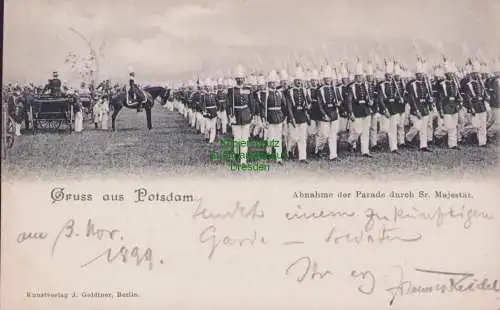 Dresden
Gruss aus Potsdam.
Abnahme der Parade durch Sr. Majestät.
am 3. Nov.
1899.
Sendet einem zukünftigen
Garde – Soldaten
Ihr
Kunstverlag J. Goldiner, Berlin.